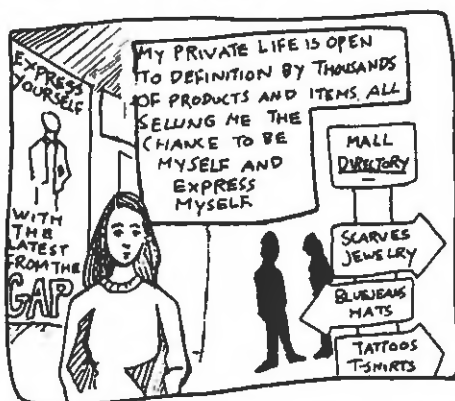 EXPRESS
YOURSELF
WITH
THE
LATEST
FROM THE
GAP
MY PRIVATE LIFE IS OPEN
TO DEFINITION BY THOUSANDS
OF PRODUCTS AND ITEMS, ALL
SELLING ME THE
CHANCE TO BE
MYSELF AND
EXPRESS
MYSELF
MALL
DIRECTORY
SCARVES
JEWELRY
BLUEJEANS
HATS
TATTOOS
T-SHIRTS